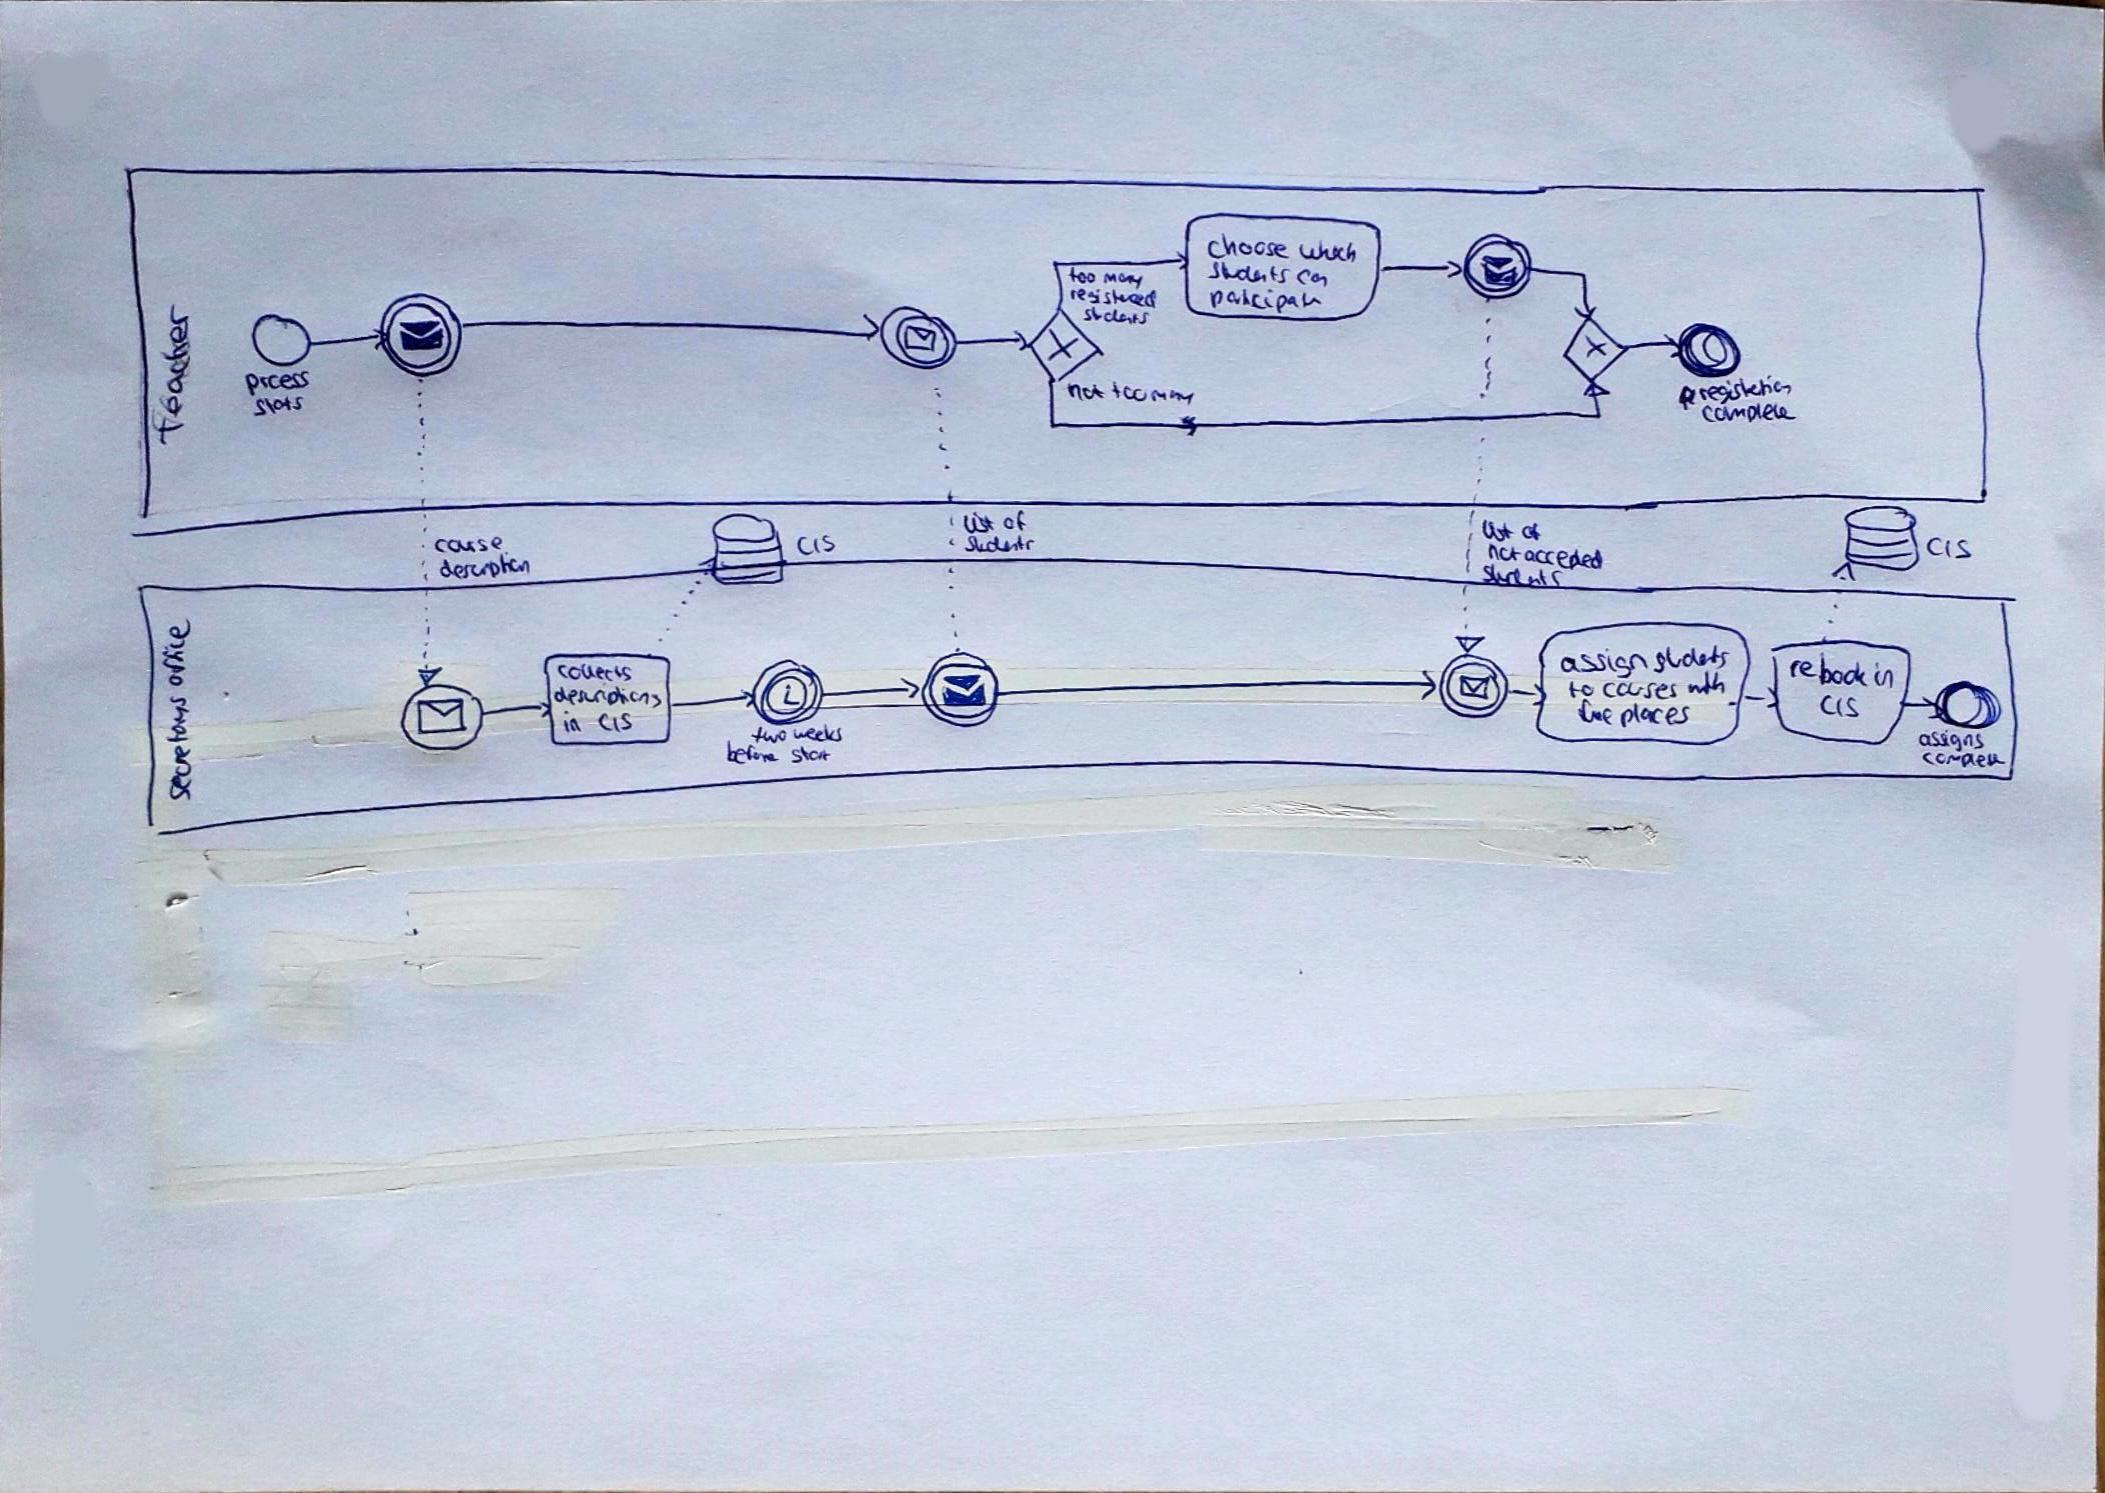 Teacher
choose which
students can
participate
too many
registered
students
prcess
stats
not too many
registration
complete
course
description
CIS
list of
students
list of
not accepted
students
CIS
secretarys office
collects
descriptions
in CIS
two weeks
before start
assign studets
to courses with
free places
rebook in
CIS
assigns
complete